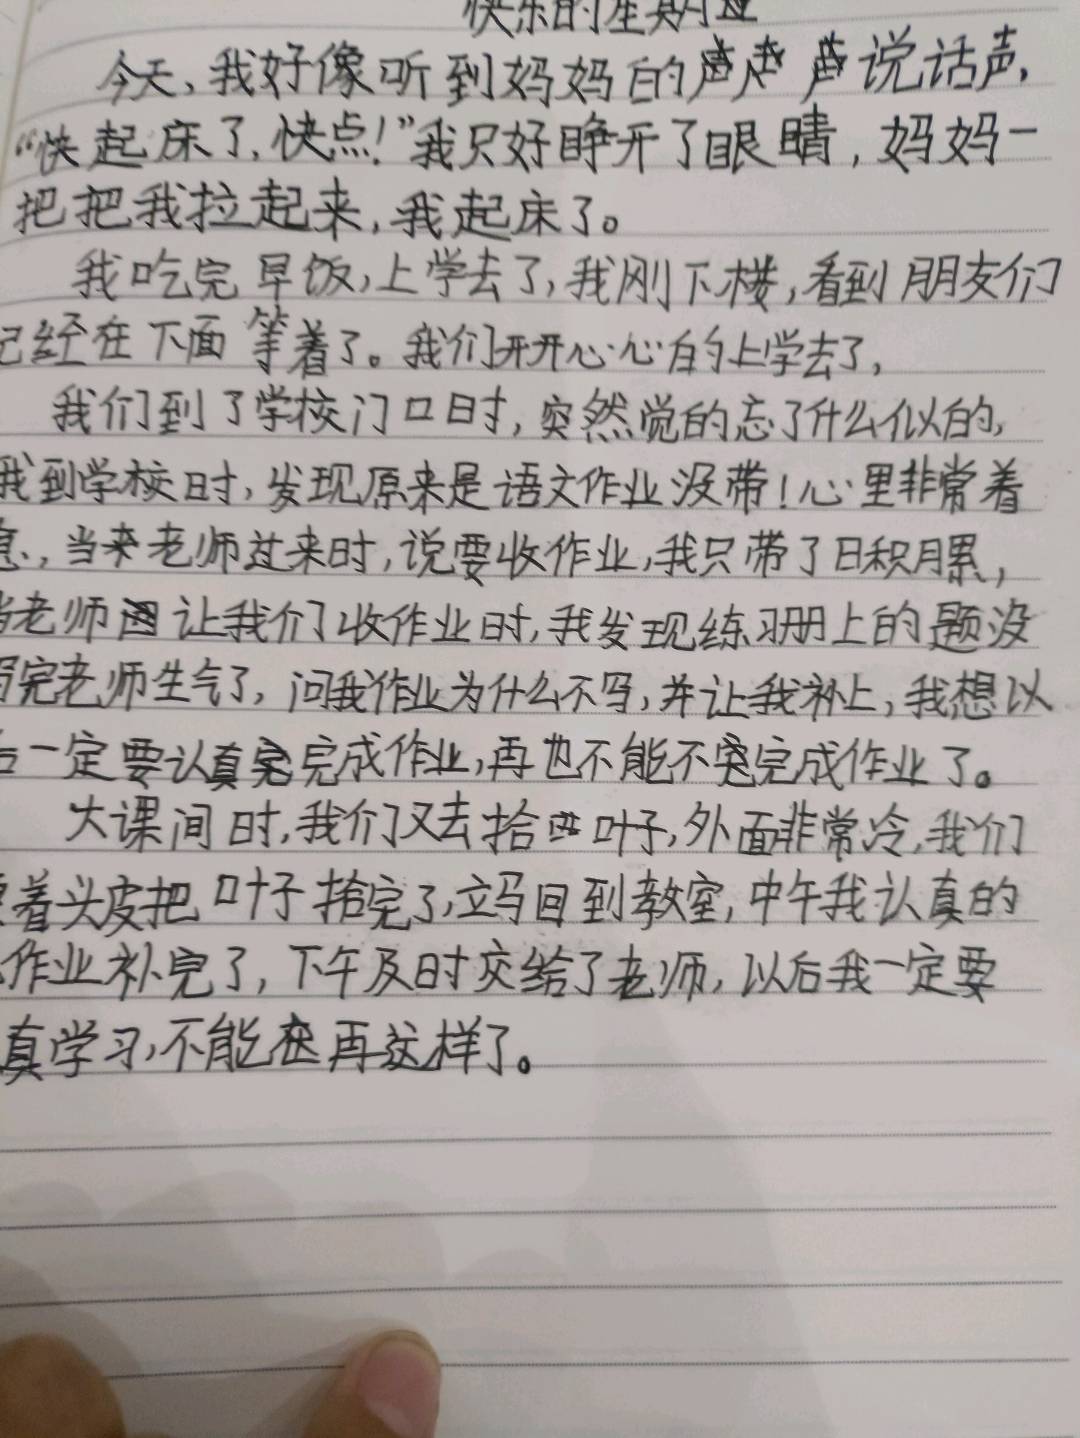 快乐的星期
今天,我好像听到妈妈的说话声,
“快起床了,快点!”我只好睁开了眼睛,妈妈一
把把我拉起来,我起床了。
我吃完早饭,上学去了,我刚下楼,看到朋友们
已经在下面等着了。我们开开心心的上学去了,
我们到了学校门口时,突然觉的忘了什么似的,
我到学校时,发现原来是语文作业没带!心里非常着
急,当老师过来时,说要收作业,我只带了日积月累,
当老师让我们收作业时,我发现练习册上的题没
写完老师生气了,问我作业为什么不写,并让我补上,我想以
后一定要认真完成作业,再也不能不完成作业了。
大课间时,我们又去拾叶子,外面非常冷,我们
着头皮把叶子拾完了,立马回到教室,中午我认真的
作业补完了,下午及时交给了老师,以后我一定要
真学习,不能再这样了。